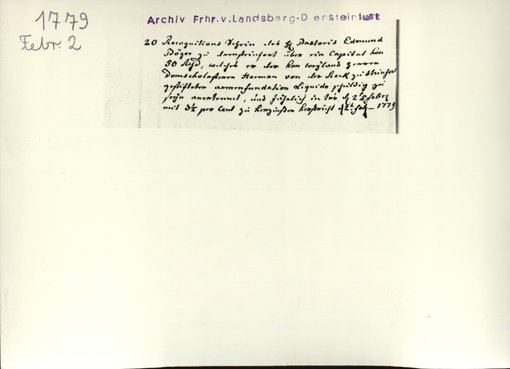 1779
Febr. 2
Archiv Frhr.v.Landsberg-D ersteinfurt
20 Recognitions Schein des H. Pastoris Edmund
zu über ein Capital von
50 Rthlr, welches er der von weyland
Domscholastern Herman von der Reck zu Steinfort
gestifteten armenfundation Liquido schuldig zu
seyn anerkennet, und Jährlich in
mit 3½ pro Cent zu verzinsen verspricht 1779